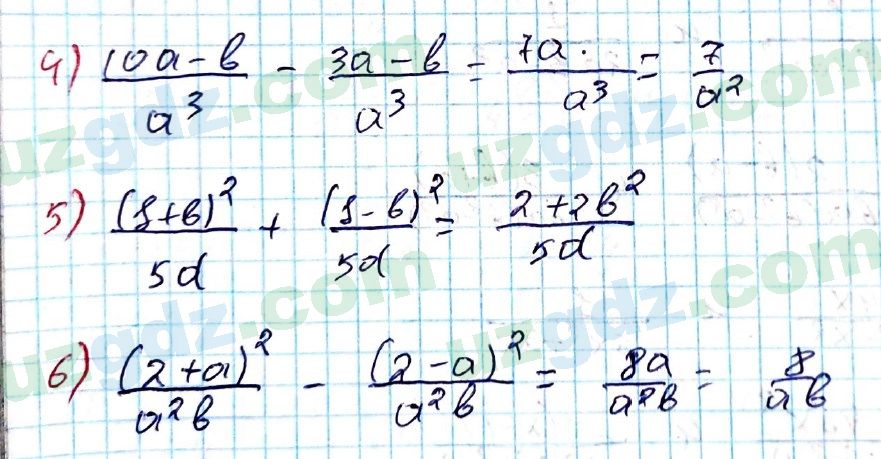 4) (10a-b)/a³ - (3a-b)/a³ = 7a/a³ = 7/a²
5) (1+b)²/5d + (1-b)²/5d = (2+2b²)/5d
6) (2+a)²/a²b - (2-a)²/a²b = 8a/a²b = 8/ab
uzgdz.com uzgdz.com
uzgdz.com uzgdz.com